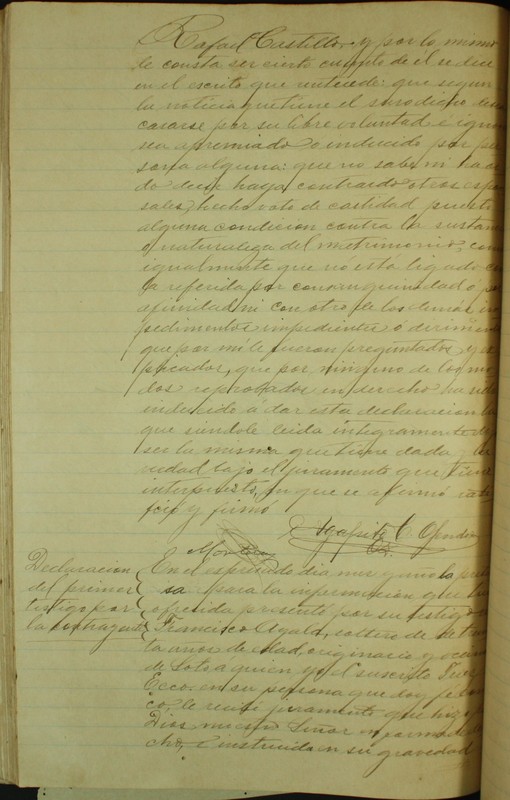 Rafael Castillo, y por lo mismo
le consta ser cierto cuanto de él se dice
en el escrito que antecede: que segun
la noticia que tiene el susodicho
casarse por su libre voluntad é igno
sea apremiado o inducido por per
sona alguna: que no sabe ni ha oi
do decir haya contraido otros espon
sales, hecho voto de castidad puesto
alguna condicion contra la sustan
o naturaleza del metrimonio, como
igualmente que no está ligado con
la referida por consanguinidad o por
afinidad ni con otro de los demás im
pedimentos impedientes o dirimentes
que por mí le fueron preguntados y es
plicados, que por ninguno de los mo
dos reprobados en derecho ha sido
inducido á dar esta declaracion la
que siendole leida integramente dijo
ser la misma que tiene dada y la
verdad bajo el juramento que tiene
interpuesto, en que se afirmó rati
ficó y firmó
Agapito C.
Montero
Declaracion
del primer
testigo por
la contrayente
En el espresado dia mes y año la
sa para la informacion que
ofrecida presentó por su testigo
Francisco Ayala, soltero de
ta años de edad, originario y vecino
de Soto a quien yo el suscrito Juez
Ecco. en su persona que doy fe cono
co, le recibí juramento que hizo
Dios nuestro Señor en forma de
cho, é instruido en su gravedad